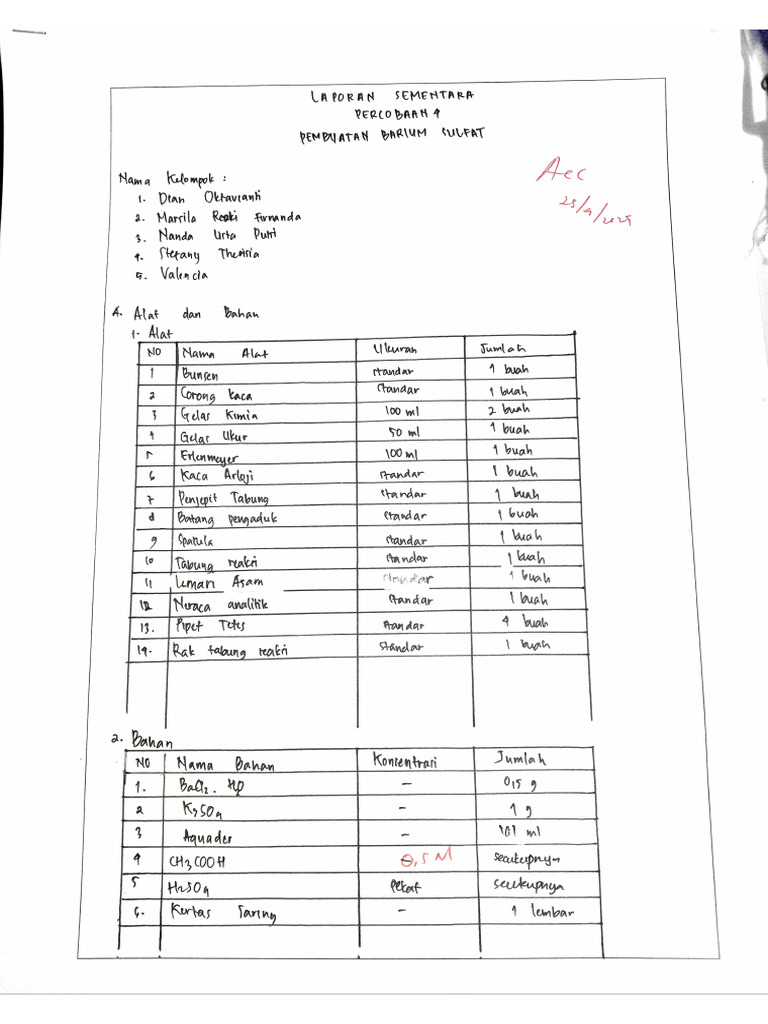 LAPORAN SEMENTARA
PERCOBAAN 4
PEMBUATAN BARIUM SULFAT
Acc
Nama Kelompok :
1. Dian Oktavianti
2. Marsila Rezki Fernanda
3. Nanda Usta Putri
4. Stefany Thesisia
5. Valencia
A. Alat dan Bahan
1. Alat
NO Nama Alat Ukuran Jumlah
1 Bunsen standar 1 buah
2 Corong kaca standar 1 buah
3 Gelas Kimia 100 ml 2 buah
4 Gelas Ukur 50 ml 1 buah
5 Erlenmeyer 100 ml 1 buah
6 Kaca Arloji standar 1 buah
7 Penjepit Tabung standar 1 buah
8 Batang pengaduk standar 1 buah
9 Spatula standar 1 buah
10 Tabung reaksi standar 1 buah
11 Lemari Asam standar 1 buah
12 Neraca analitik standar 1 buah
13. Pipet Tetes standar 4 buah
14. Rak tabung reaksi standar 1 buah
2. Bahan
NO Nama Bahan Konsentrasi Jumlah
1. BaCl2 . H2O - 0,15 g
2 K2SO4 - 1 g
3 Aquades - 101 ml
4 CH3COOH 0,5 M secukupnya
5 H2SO4 pekat secukupnya
6. Kertas Saring - 1 lembar